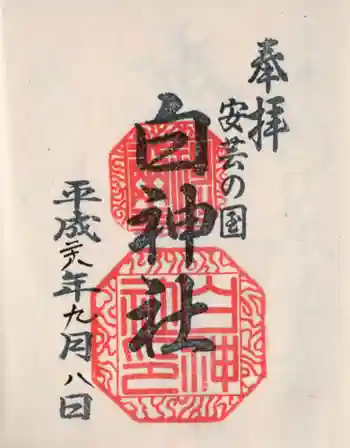 奉拝
安芸の国
白神社
平成二十八年九月八日
白神
社印